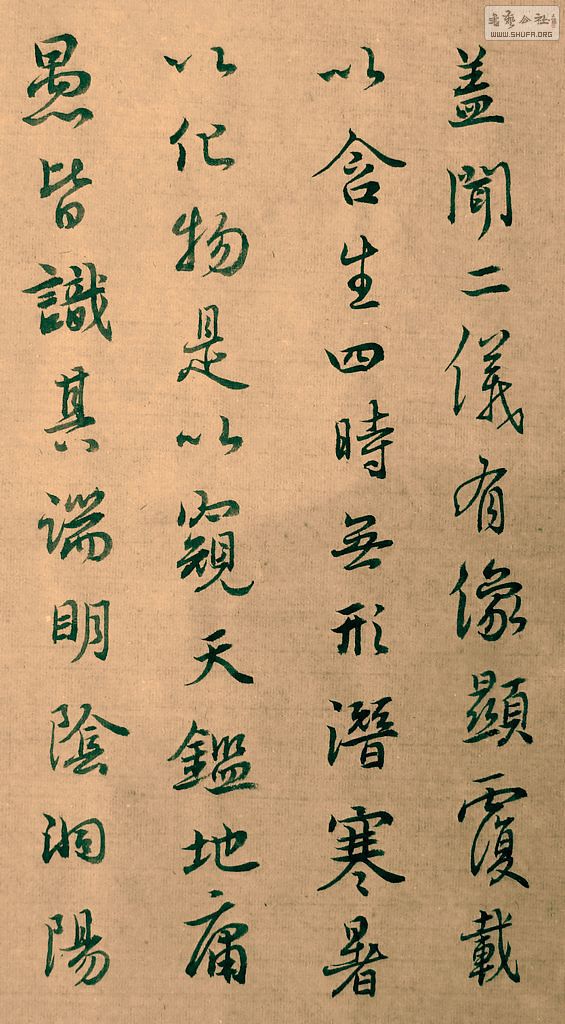 蓋聞二儀有像顯覆載
以含生四時無形潛寒暑
以化物是以窺天鑑地庸
愚皆識其端明陰洞陽
WWW.SHUFA.ORG